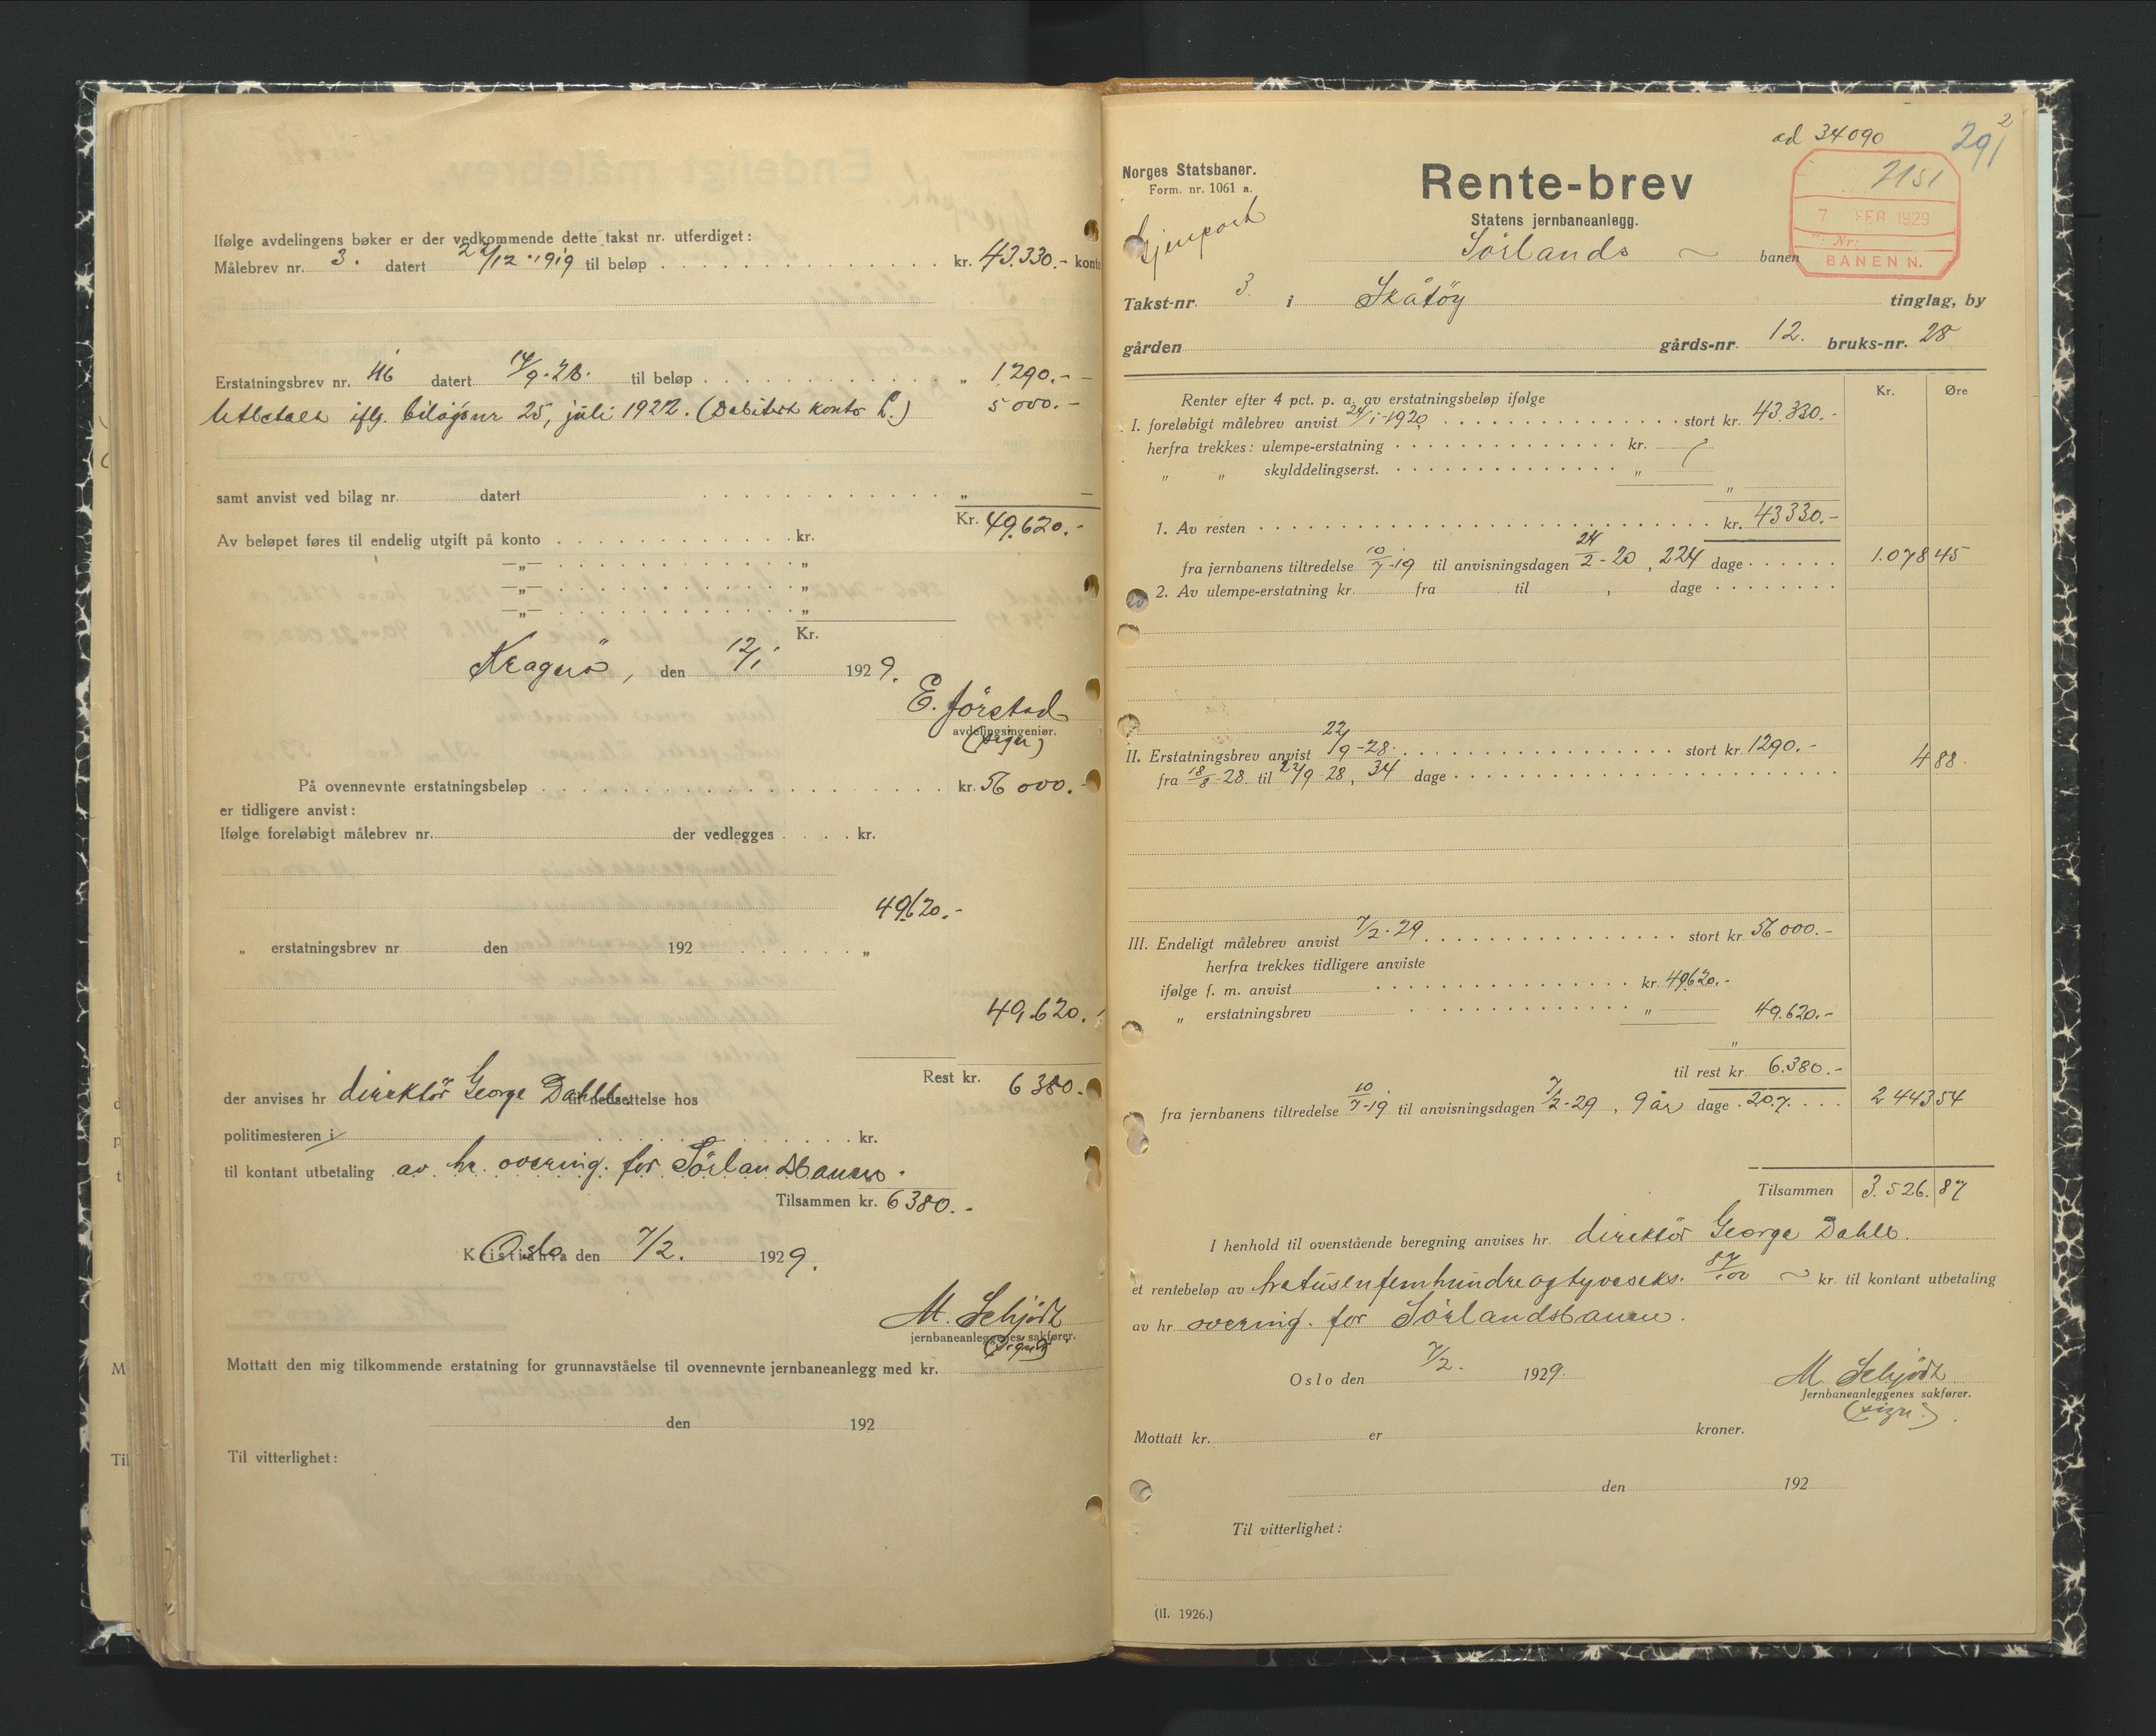 Ifølge avdelingens bøker er der vedkommende dette takst nr. utferdiget:
Målebrev nr. 3. datert 22/12.1919 til beløp kr. 43.330.- konto
Erstatningsbrev nr. 46 datert 14/9.28. til beløp „ 1290.-
Utbetalt iflg. bilagsnr 25, juli 1922. (Debitert konto L.) 5000.-
samt anvist ved bilag nr. datert „ —
Kr. 49.620.-
Av beløpet føres til endelig utgift på konto kr.
—„— „
—„— „
—„— „
Kr.
Kragerø, den 12/1 1929.
E. Jørstad
avdelingsingeniør.
(sign)
På ovennevnte erstatningsbeløp kr. 56 000.-
er tidligere anvist:
Ifølge foreløbigt målebrev nr. der vedlegges kr.
49620.-
„ erstatningsbrev nr den 192 „
49.620.-
Rest kr. 6380.-
der anvises hr direktör George Dahll til nedsettelse hos
politimesteren i kr.
til kontant utbetaling av hr. overing. for Sörlandsbanen.
Tilsammen kr. 6380.-
Kristiania Oslo den 7/2. 1929.
M. Schjödt
jernbaneanleggenes sakfører.
(sign)
Mottatt den mig tilkommende erstatning for grunnavståelse til ovennevnte jernbaneanlegg med kr.
den 192
Til vitterlighet:
ad 34090
291
2
Norges Statsbaner.
Form. nr. 1061 a.
Gjenpart
Rente-brev
Statens jernbaneanlegg.
2151
7 FEB 1929
Nr:
BANEN N.
Sörlands banen
Takst-nr. 3. i Skåtöy tinglag, by
gården gårds-nr. 12. bruks-nr. 28
Kr. Øre
Renter efter 4 pct. p. a. av erstatningsbeløp ifølge
I. foreløbigt målebrev anvist 24/1-1920 stort kr. 43.330.-
herfra trekkes: ulempe-erstatning kr.
„ „ skylddelingserst. „
„
1. Av resten kr. 43330.-
fra jernbanens tiltredelse 10/7-19 til anvisningsdagen 24/2-20, 224 dage 1.078 45
2. Av ulempe-erstatning kr. fra til , dage
II. Erstatningsbrev anvist 22/9-28. stort kr. 1290.-
fra 18/8-28. til 22/9 28, 34 dage 4 88.
III. Endeligt målebrev anvist 7/2.29 stort kr. 56000.-
herfra trekkes tidligere anviste
ifølge f. m. anvist kr. 49620.-
„ erstatningsbrev „ 49.620.-
„
til rest kr. 6.380.-
fra jernbanens tiltredelse 10/7-19 til anvisningsdagen 7/2-29, 9 år dage 207. 2 443 54
Tilsammen 3.526.87
I henhold til ovenstående beregning anvises hr. direktör George Dahll.
et rentebeløp av tretusenfemhundreogtyveseks. 87/100 kr. til kontant utbetaling
av hr overing. for Sörlandsbanen.
Oslo den 7/2. 1929.
M. Schjödt
Jernbaneanleggenes sakfører.
(sign.)
Mottatt kr. er kroner.
den 192
Til vitterlighet:
(II. 1926.)